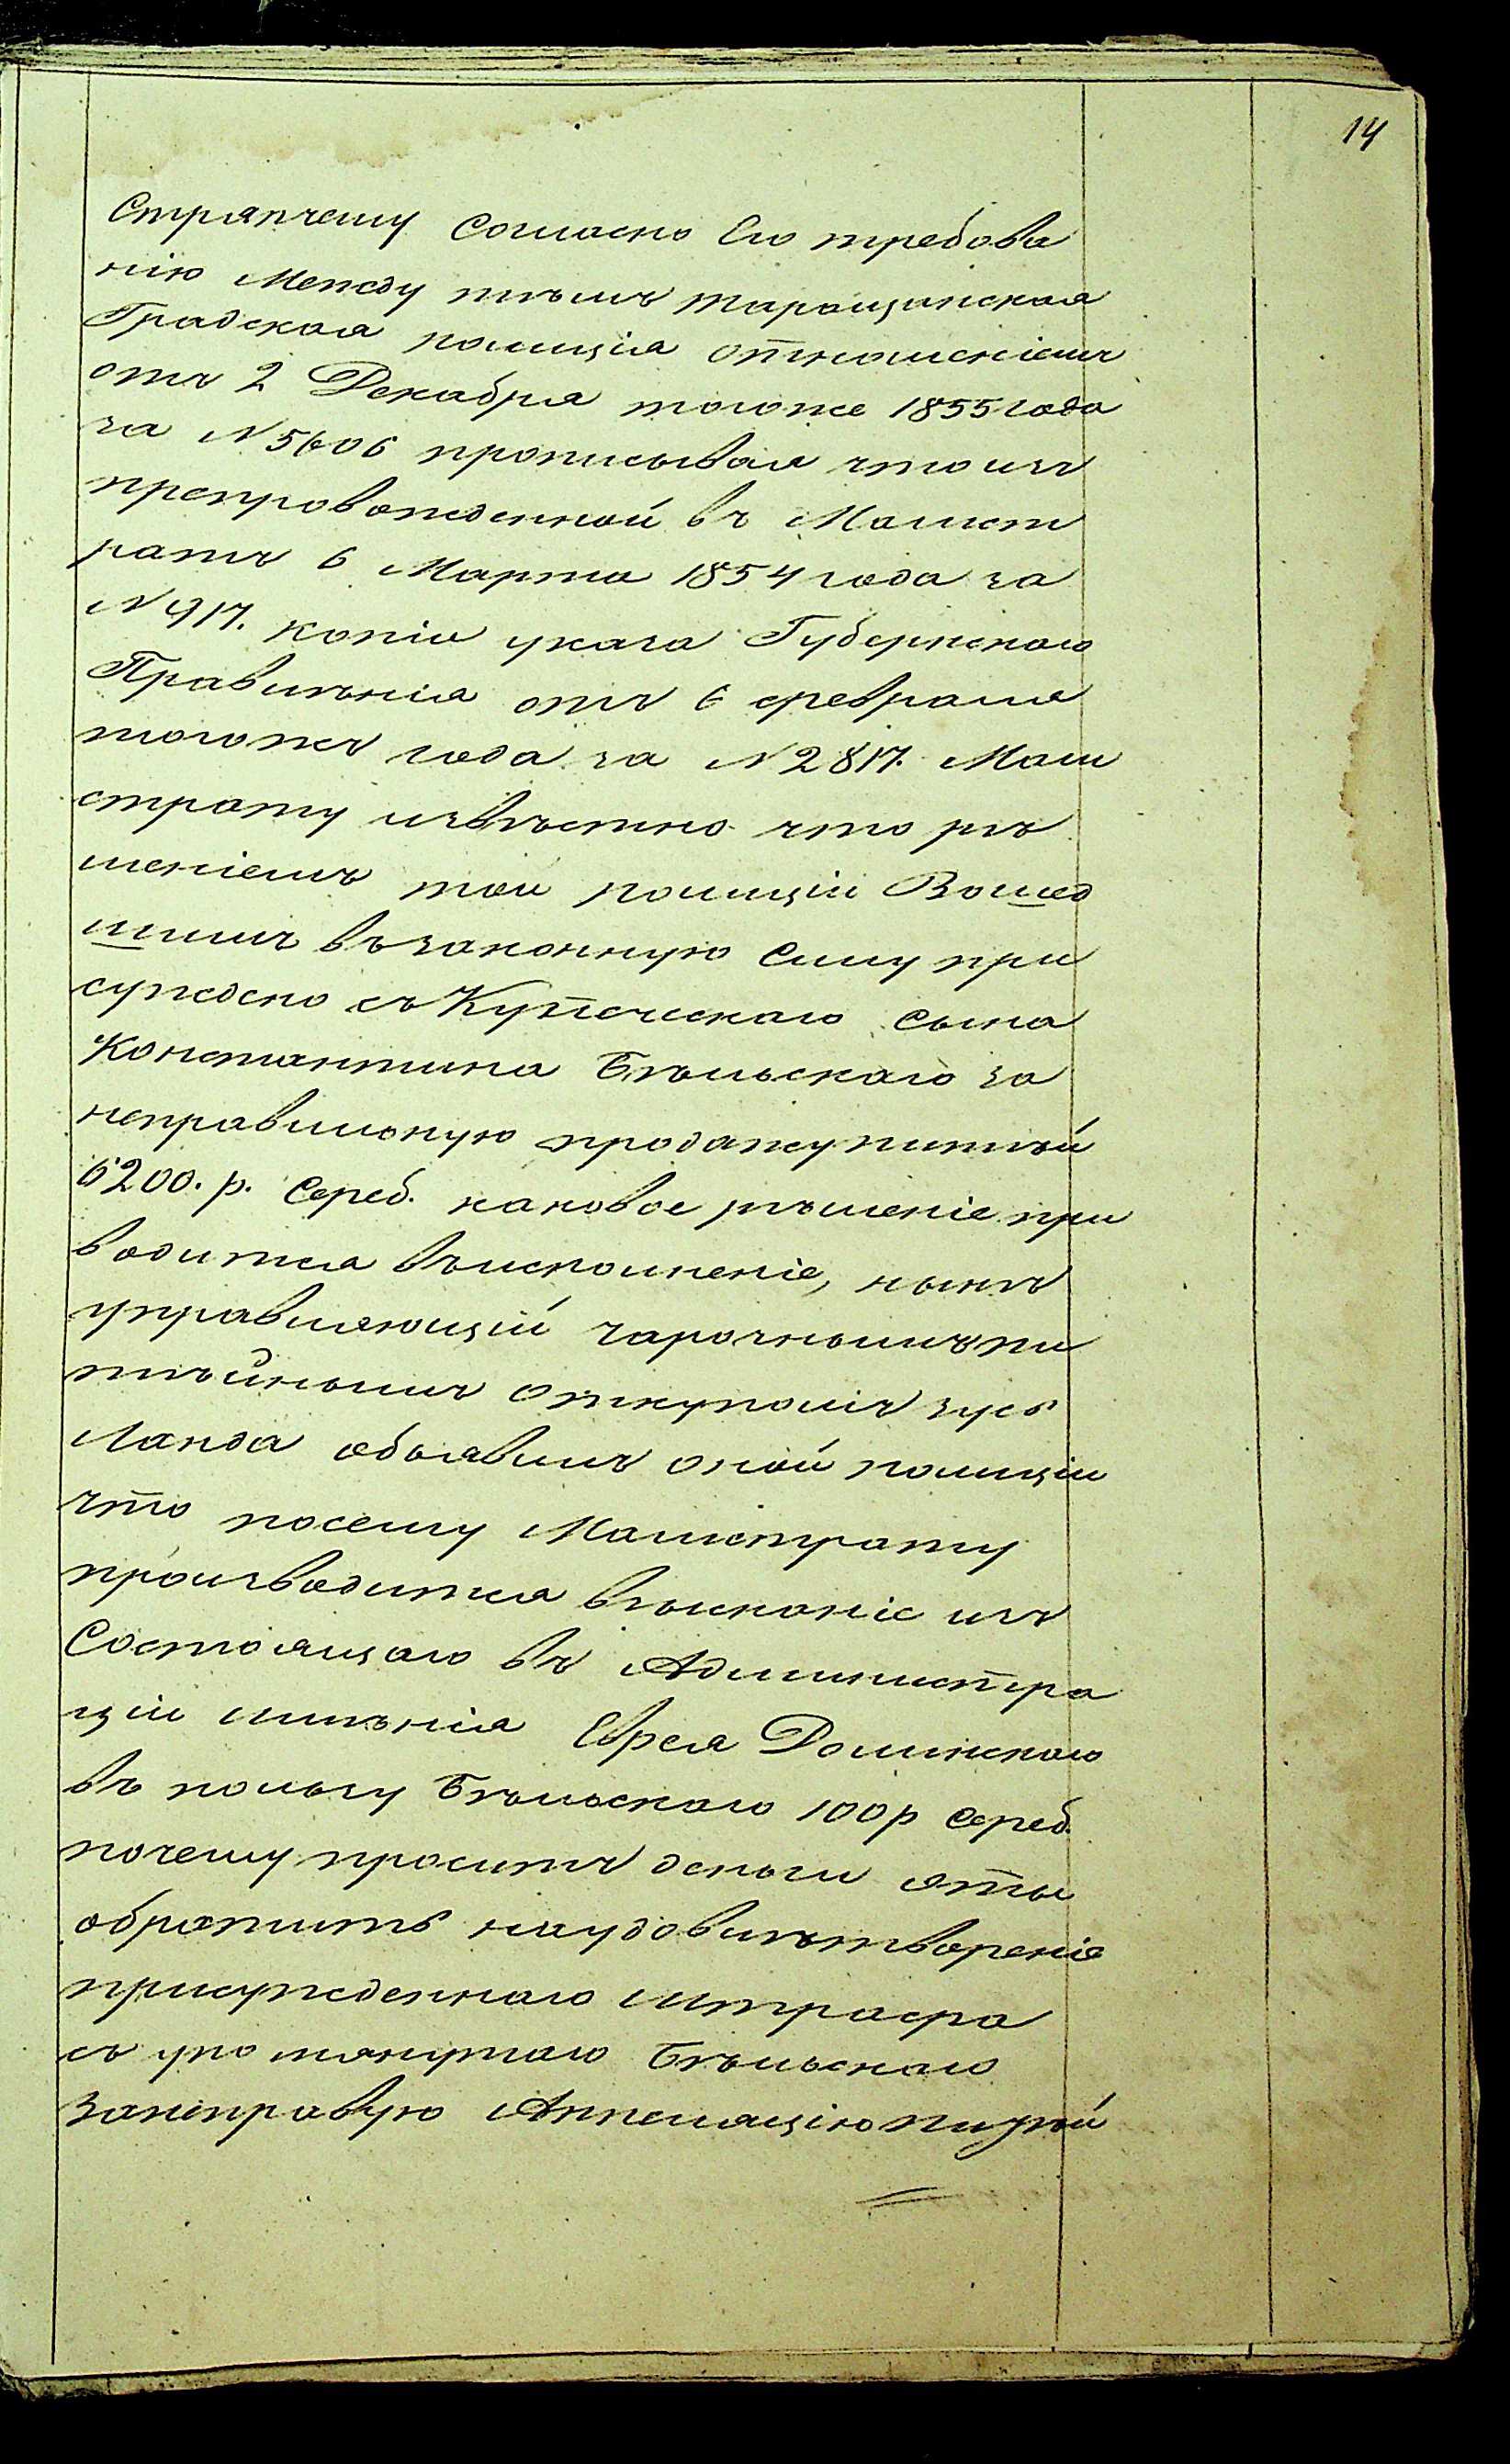 14
Стряпчему Согласно Его требова
нію Между тѣмъ таращанская
Градская полиція отношеніемъ
отъ 2 Декабря тогоже 1855 года
за N 5606 прописывая что изъ
препровожденной въ Магист
ратъ 6 Марта 1854 года за
N 917. копіи указа Губернскаго
Правлѣнія отъ 6 февраля
тогожъ года за N 2817. Маги
страту извѣстно что рѣ
шеніемъ той полиціи Вошед
шимъ въ законную Силу при
суждено съ Купеческаго сына
Константина Бѣльскаго за
неправильную продажу питѣй
6200. р. Сереб. каковое рѣшеніе при
водится въисполненіе, нынѣ
управляющій чарочнымъ пи
тѣйнымъ откупомъ зусь
Ланда объявилъ оной полиціи
что посему Магистрату
производится взысканіе изъ
Состоящаго въ Администра
ціи имѣнія Еврея Долинскаго
въ пользу Бѣльскаго 100 р Сереб.
почему проситъ деньги эты
обратить наудовлѣтвореніе
присужденнаго штрафа
съ упомянутаго Бѣльскаго
занеправую Аппеляцію питѣй